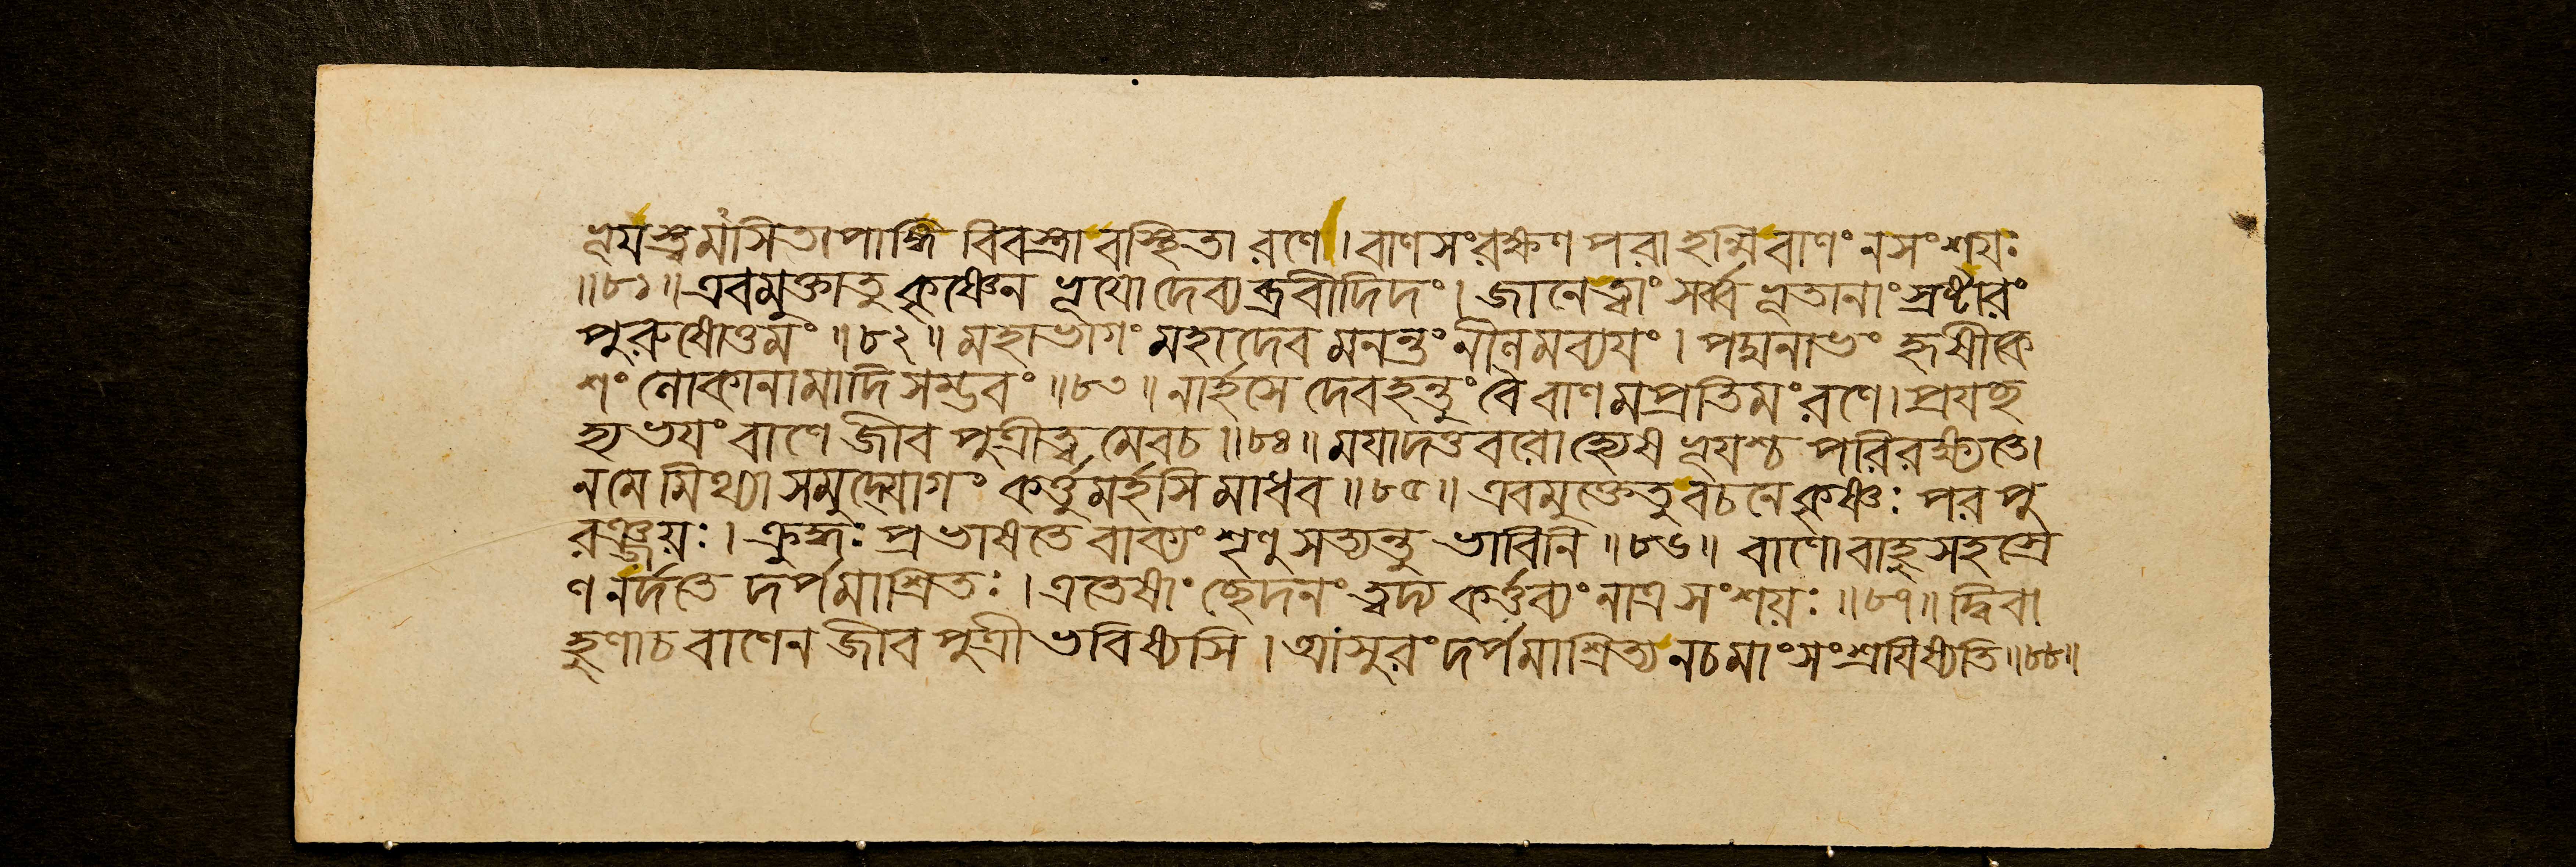 ভূযস্ত্বমসিতাপাঙ্গি বিবস্ত্রাবস্থিতা রণে। বাণসংরক্ষণপরা হন্মি বাণং নসংশযঃ
॥৮১॥ এবমুক্তাতু কৃষ্ণেন ভূযো দেব্যব্রবীদিদং। জানেত্বাং সর্ব্বভূতানাং স্রষ্টারং
পুরুষোত্তমং ॥৮২॥ মহাভাগং মহাদেবমনন্তং নীলমব্যযং। পদ্মনাভং হৃষীকে
শং লোকানামাদিসম্ভবং ॥৮৩॥ নার্হসে দেবহন্তুং বৈ বাণমপ্রতিমং রণে। প্রযচ্ছ
হ্যভযং বাণে জীবপুত্রীত্বমেবচ ॥৮৪॥ মযাদত্তবরোহ্যেষ ভূযশ্চ পরিরক্ষ্যতে।
নমে মিথ্যা সমুদ্যোগং কর্ত্তুমর্হসি মাধব ॥৮৫॥ এবমুক্তেতু বচনে কৃষ্ণঃ পরপু
রঞ্জয়ঃ। ক্রুদ্ধঃ প্রভাষতে বাক্যং শৃণু সত্যন্তু ভাবিনি ॥৮৬॥ বাণো বাহুসহস্রে
ণ নর্দতে দর্পমাশ্রিতঃ। এতেষাং ছেদনং ত্বদ্য কর্ত্তব্যং নাত্র সংশয়ঃ ॥৮৭॥ দ্বিবা
হুণাচ বাণেন জীবপুত্রী ভবিষ্যসি। আসুরং দর্পমাশ্রিত্য নচমাং সংশ্রযিষ্যতি ॥৮৮॥